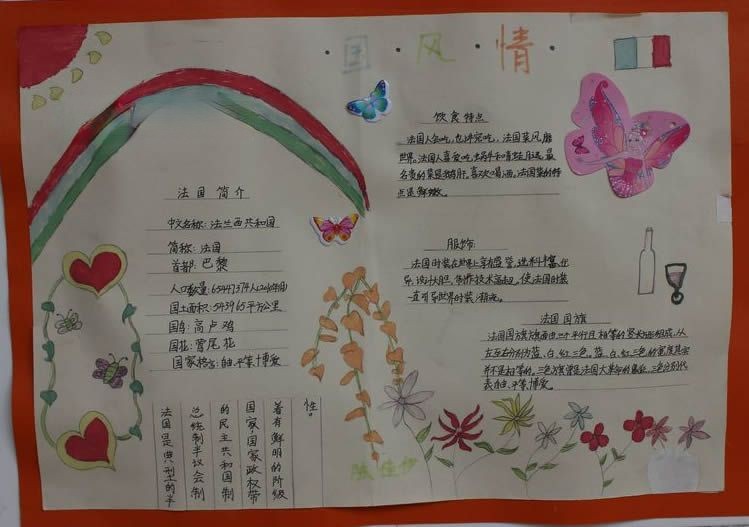 ·国·风·情·
法国简介
中文名称：法兰西共和国
简称：法国
首都：巴黎
国土面积：543965平方公里
国鸟：高卢鸡
国花：鸢尾花
国家格言：自由、平等、博爱
法国是典型的半
总统制半议会制
的民主共和国制
国家，国家政权带
着有鲜明的阶级
性。
饮食特点
法国人会吃，也讲究吃。法国菜风靡
世界。法国人喜爱吃蜗牛和青蛙腿，最
名贵的菜是鹅肝。喜欢喝酒。法国菜的特
点是鲜嫩。
服饰
法国时装在世界上享有盛誉，选料丰富、
设计大胆，制作技术高超，使法国时装
一直引导世界时装潮流。
法国国旗
法国国旗旗面由三个平行且相等的竖长方形组成，从
左至右分别为蓝、白、红三色。蓝、白、红三色的宽度其实
并不是相等的。三色旗曾是法国大革命的象征，三色分别代
表自由、平等、博爱。